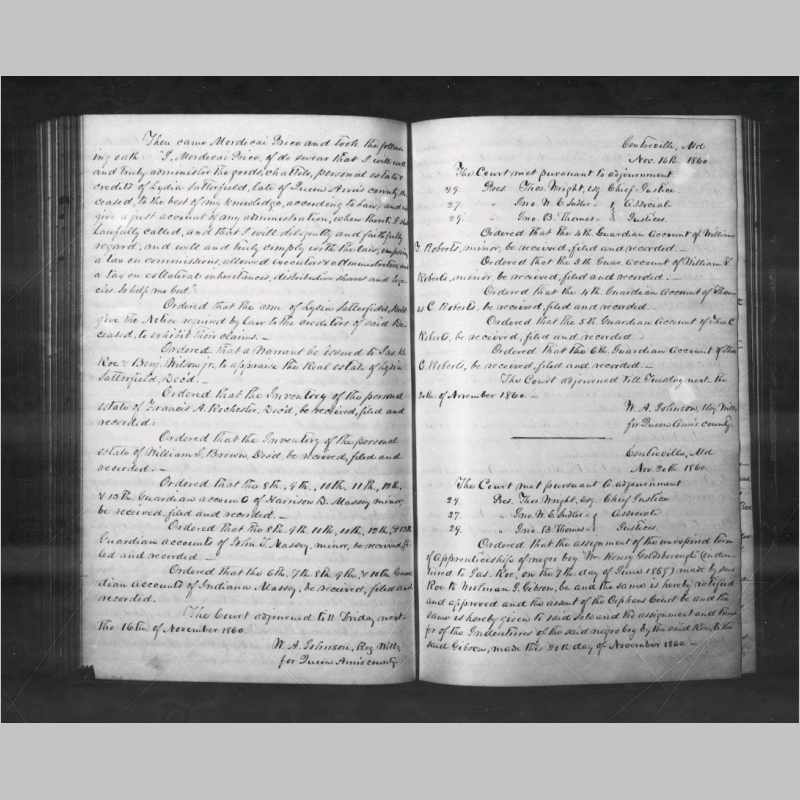 Then came Mordicai Price and took the follow-
ing oath "I, Mordecai Price, do swear that I will well
and truly administer the goods, chattels, personal estate &
credits of Lydia Satterfield, late of Queen Ann's county de-
ceased, to the best of my knowledge, according to law, and will
give a just account of my administration, when thereto I shall
lawfully called, and that I will diligently and faithfully
regard, and will and truly comply with the law, imposing
a tax on commissions, allowed executors & administrators, and
a tax on collateral inheritances, distributive shares and lega-
cies So help me God."
Ordered that the adm. of Lydia Satterfield, Decd
give the Notice required by Law to the creditors of said De-
ceased, to exhibit their claims. —
Ordered that a Warrant be issued to Jas.
Roe & Benj. Wilson jr, to appraise the Real estate of Lydia
Satterfield, Dec'd. —
Ordered that the Inventory of the personal
estate of Francis A. Rochester, Dec'd, be received, filed and
recorded. —
Ordered that the Inventory of the personal
estate of William J. Brown, Dec'd, be received, filed and
recorded. —
Ordered that the 8th, 9th, 10th, 11th, 12th,
& 13th Guardian account of Harrison D. Massey minor,
be received, filed and recorded. —
Ordered that the 8th, 9th, 10th, 11th, 12th, & 13th
Guardian accounts of John T. Massey, minor, be received, fi-
led and recorded. —
Ordered that the 6th, 7th, 8th, 9th, & 10th Guar-
dian accounts of Indiana Massey, be received, filed and
recorded.
The Court adjourned till Friday next
the 16th of November 1860.
W. A. Johnson, Reg Wills
for Queen Ann's county.
Centreville, Md
Nov. 16th 1860.
The Court met pursuant to adjournment
29. Pres. Thos. Wright, esq Chief Justice
27. " Jno. W. E. Sudler } Associat
29. " Jno. B. Thomas } Justices.
Ordered that the 4th Guardian Account of William
S. Roberts, minor, be received, filed and recorded. —
Ordered that the 5th Guar. Account of William S.
Roberts, minor, be received, filed and recorded. —
Ordered that the 4th Guardian Account of Thom-
as C. Roberts, be received, filed and recorded. —
Ordered that the 5th Guardian Account of Thos C.
Roberts, be received, filed and recorded. —
Ordered that the 6th Guardian Account of Thos
C. Roberts, be received, filed and recorded. —
The Court adjourned till Tuesday next the
20th of November 1860. —
W. A. Johnson, Reg Wills
for Queen Ann's county.
Centreville, Md
Nov. 20th 1860.
The Court met pursuant to adjournment
29. Pres. Thos. Wright, Esq. Chief Justice
27. " Jno. W. E. Sudler } Associate
29. " Jno. B. Thomas } Justices.
Ordered that the assignment of the unexpired term
of apprenticeship of negro boy "Wm Henry Goldsborough (inden-
tured to Jas. Roe, on the 7th day of June 1859) made by said
Roe to Woolman J. Gibson, be and the same is hereby ratified
and approved and the assent of the Orphans Court be and the
same is hereby given to said sale and the assignment and trans-
fer of the Indentures of the said negro boy by the said Roe, to the
said Gibson, made this 20th day of November 1860. —